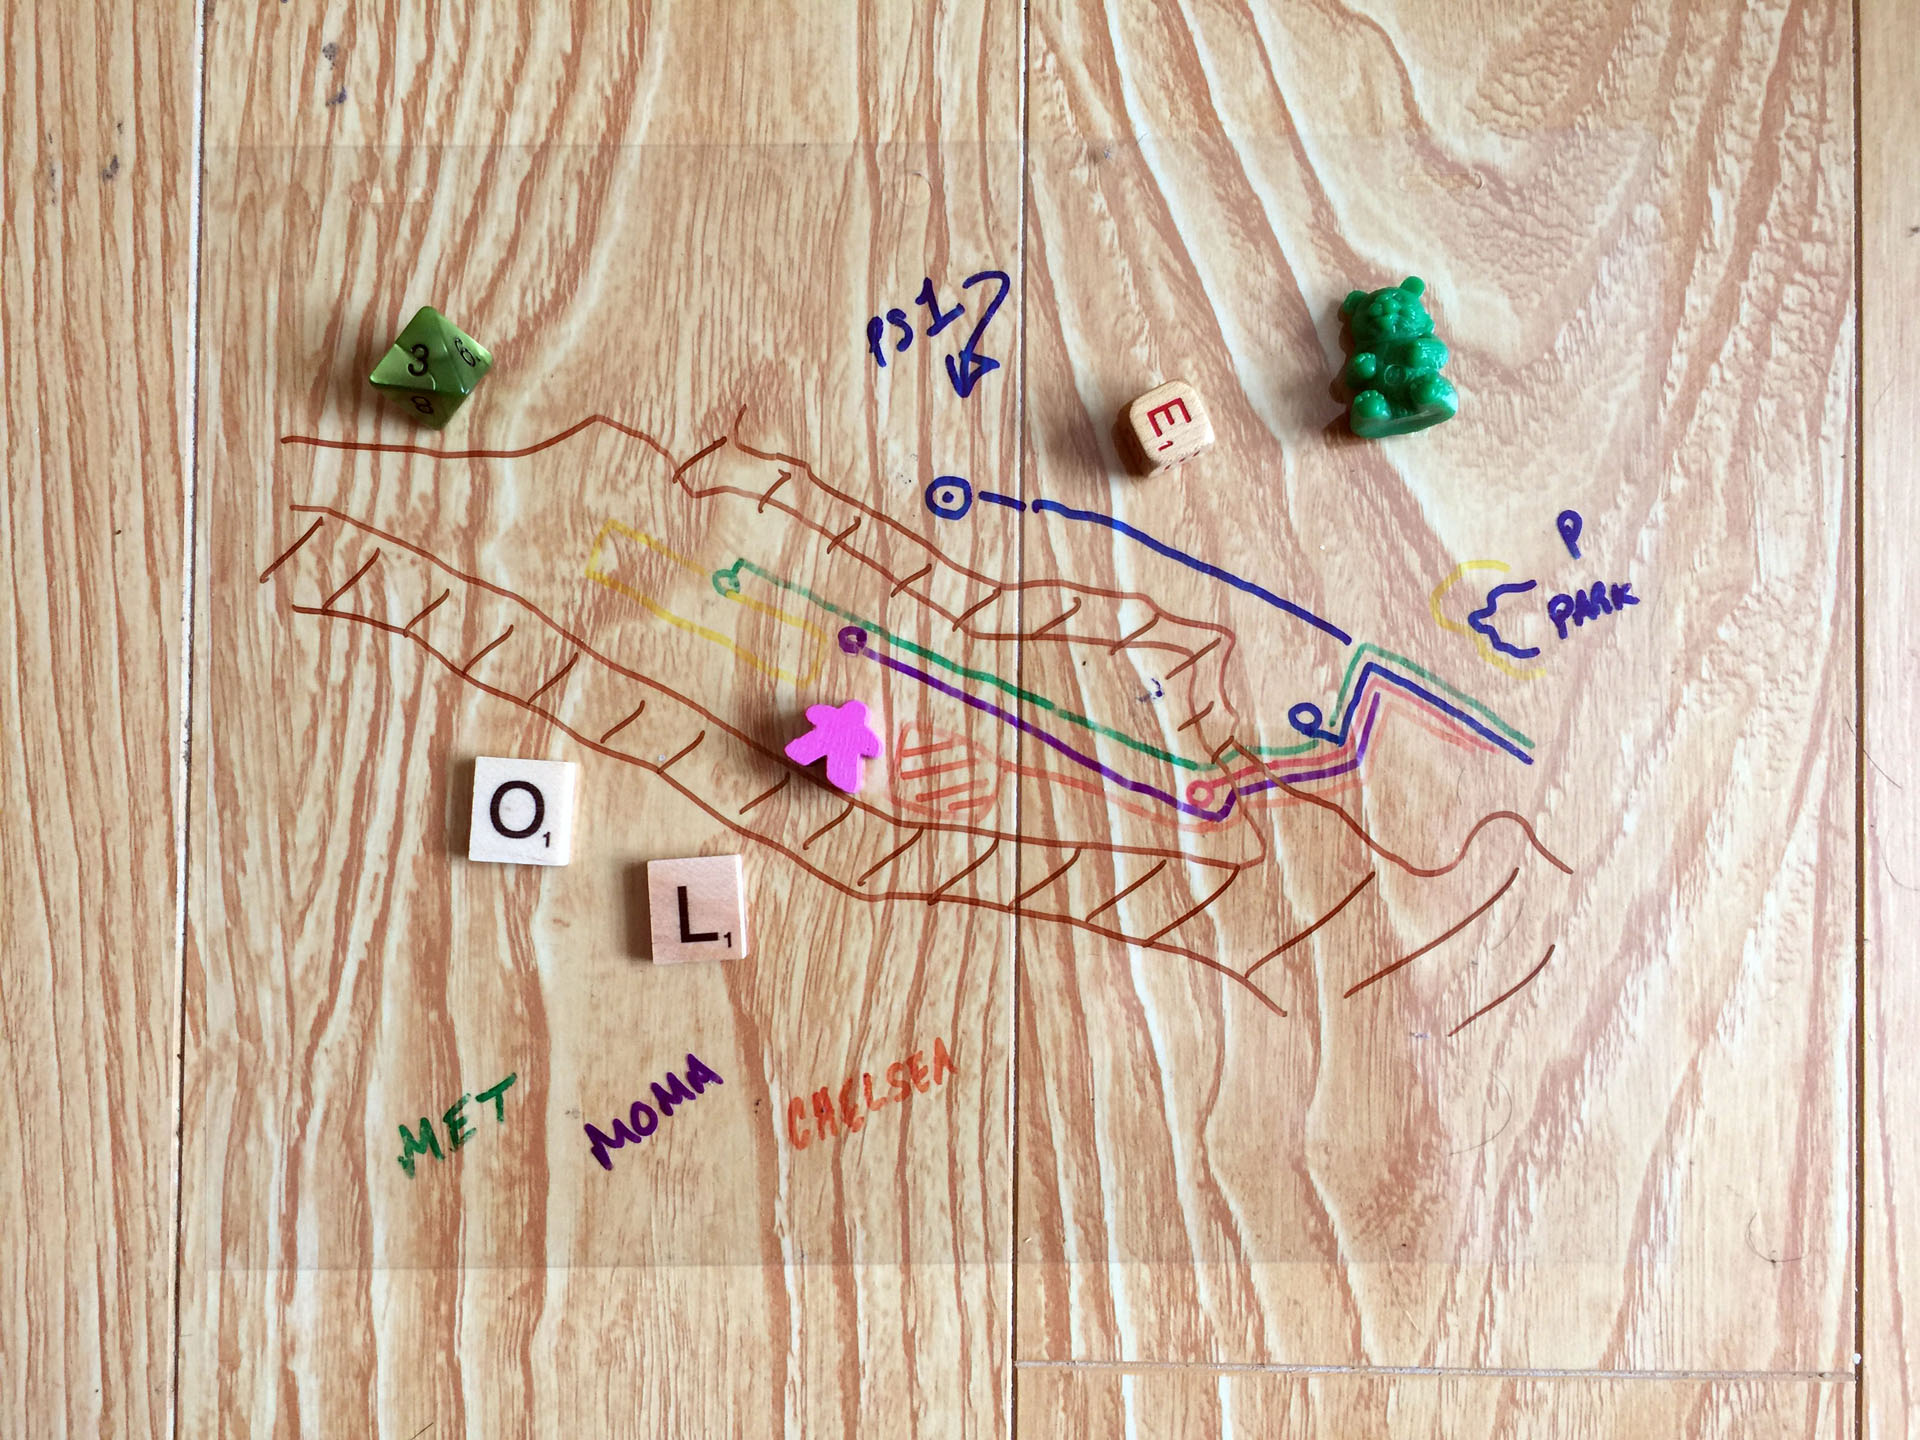 PS1
3
6
8
E1
P
PARK
O1
L1
MET
MOMA
CHELSEA